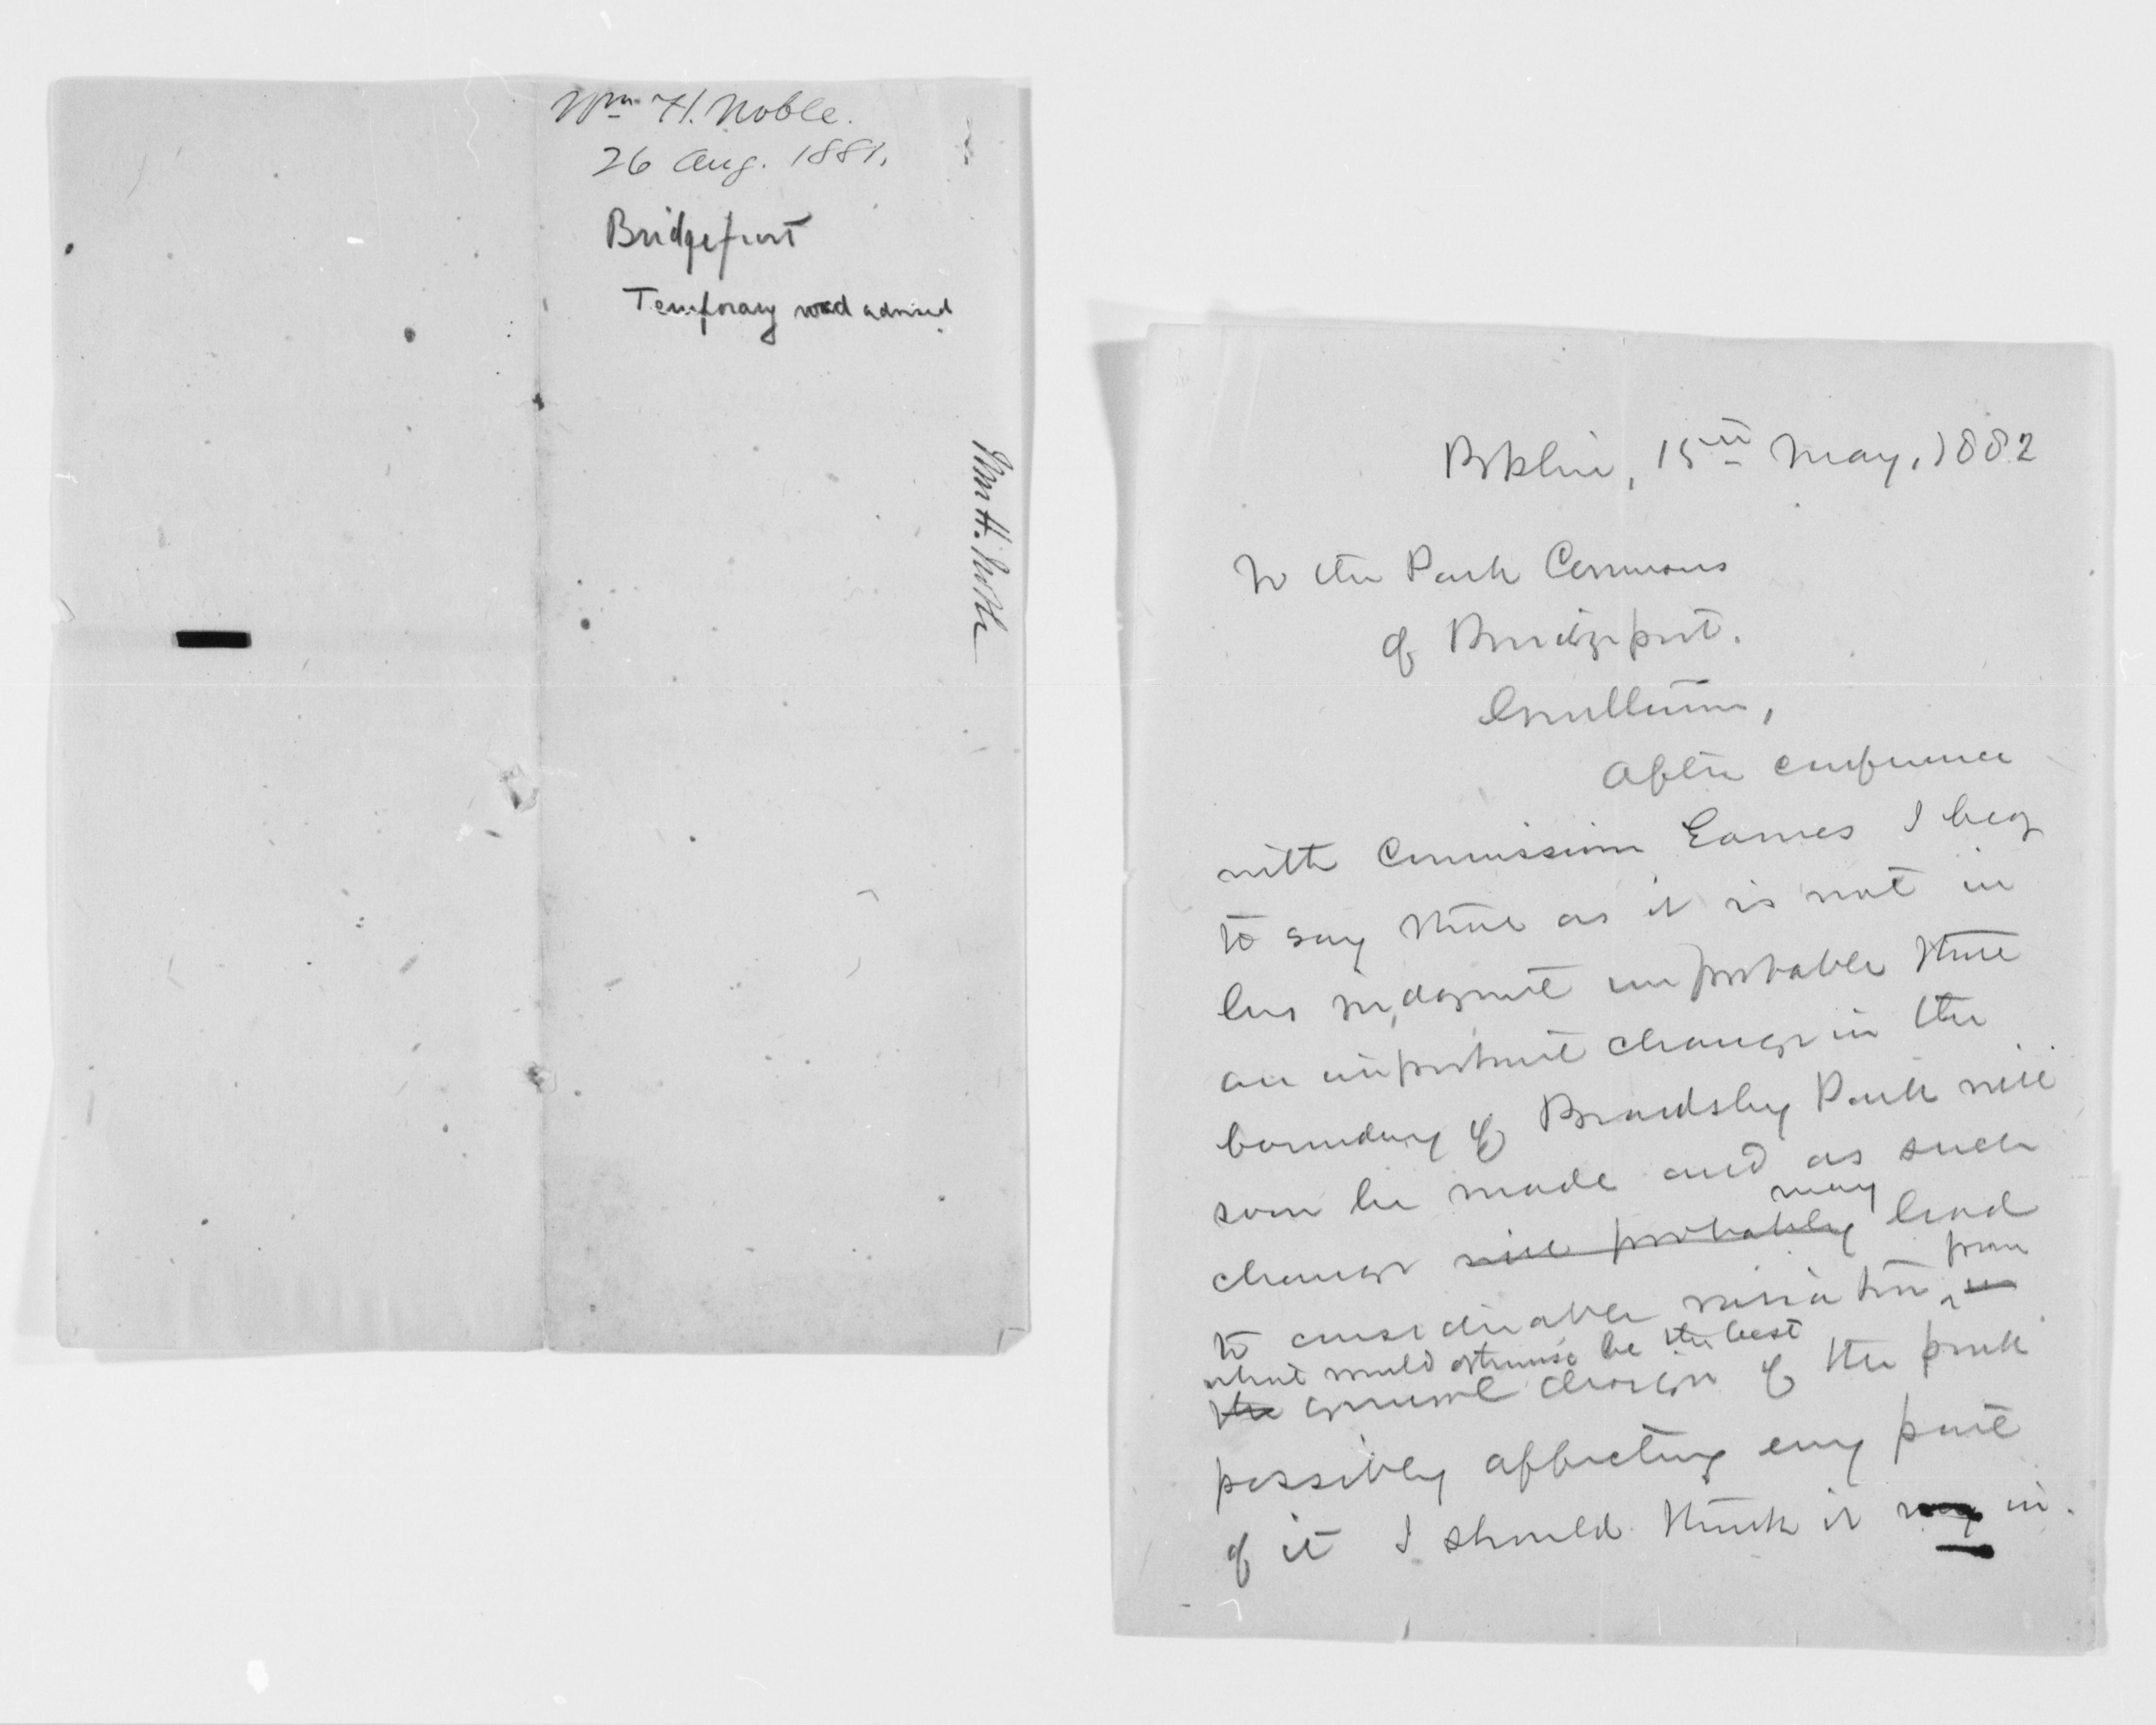 Wm H. Noble.
26 Aug. 1881.
Bridgeport
Temporary road advised.
Wm H. Noble
Bkline, 15th May, 1882
To the Park Commrs
of Bridgeport.
Gentlemen,
After conference
with Commissioner Eames I beg
to say that as it is not in
his judgment improbable that
an important change in the
boundary of Beardsley Park will
soon be made and as such
may
change will probably lead
from
to considerable variation in
what would otherwise be the best
the general design of the park
possibly affecting every part
of it I should think it in-